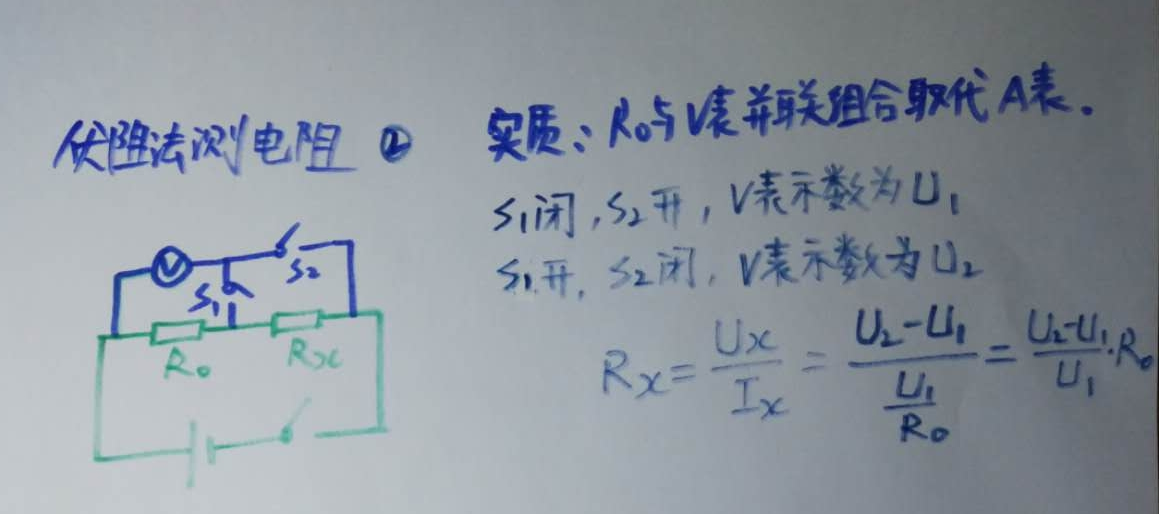 伏阻法测电阻 ②
实质：R₀与V表并联组合取代A表。
S₁闭，S₂开，V表示数为U₁
S₁开，S₂闭，V表示数为U₂
Rx=Ux/Ix=(U₂-U₁)/(U₁/R₀)=(U₂-U₁)/U₁·R₀
V
S₂
S₁
R₀
Rx